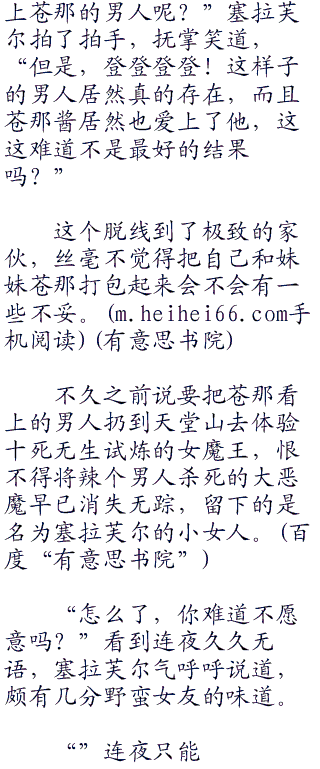 上苍那的男人呢？”塞拉芙
尔拍了拍手，抚掌笑道，
“但是，登登登登！这样子
的男人居然真的存在，而且
苍那酱居然也爱上了他，这
这难道不是最好的结果
吗？”
这个脱线到了极致的家
伙，丝毫不觉得把自己和妹
妹苍那打包起来会不会有一
些不妥。(m.heihei66.com手
机阅读)(有意思书院)
不久之前说要把苍那看
上的男人扔到天堂山去体验
十死无生试炼的女魔王，恨
不得将辣个男人杀死的大恶
魔早已消失无踪，留下的是
名为塞拉芙尔的小女人。(百
度“有意思书院”)
“怎么了，你难道不愿
意吗？”看到连夜久久无
语，塞拉芙尔气呼呼说道，
颇有几分野蛮女友的味道。
“”连夜只能